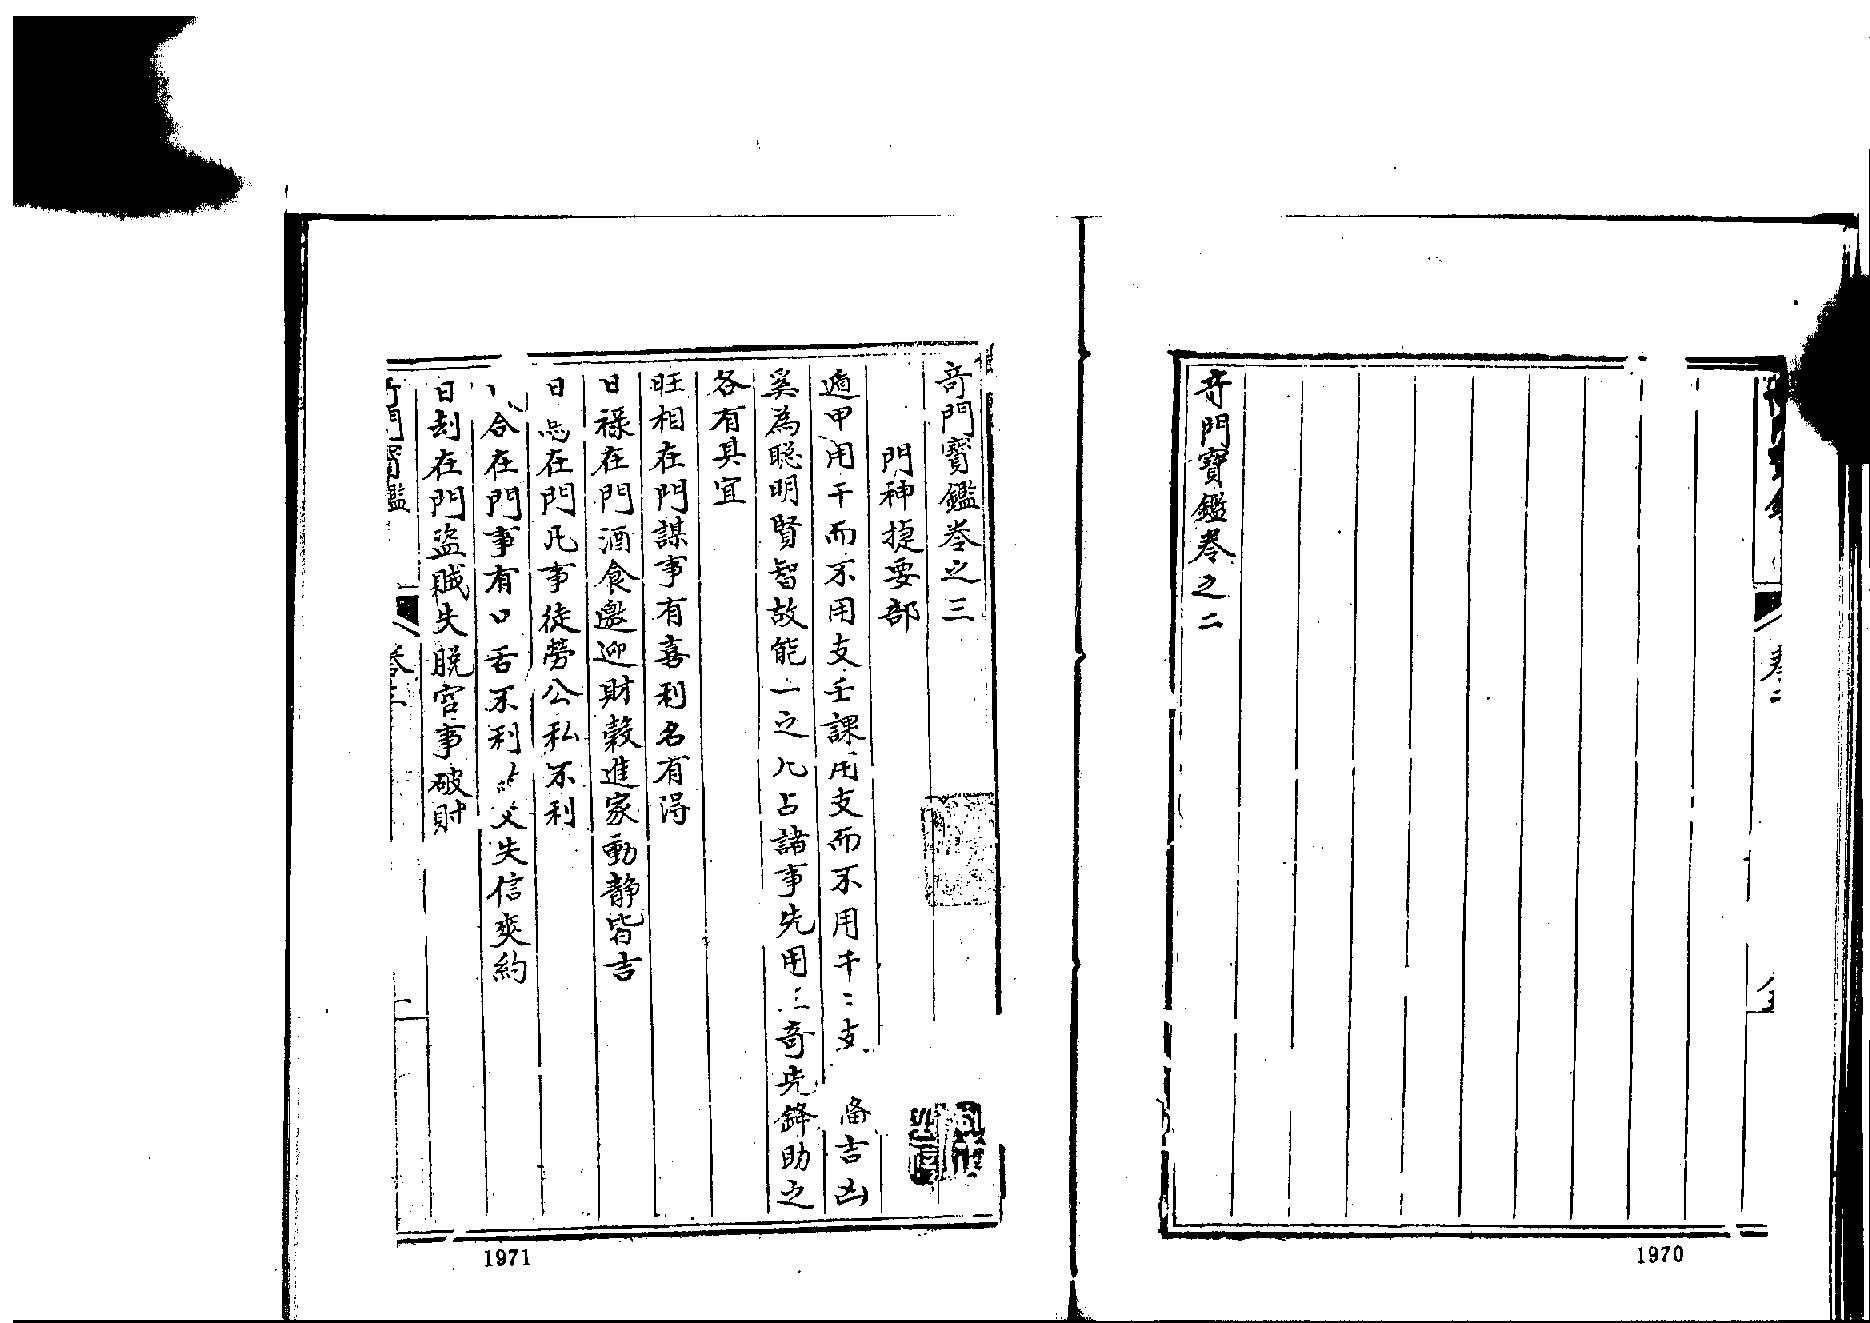 奇門寶鑑卷之二
1970
奇門寶鑑卷之三
門神捷要部
遁甲用干而不用支壬課用支而不用干二支 吉凶
奚為聰明賢智故能一之凡占諸事先用三奇先鋒助之
各有具宜
旺相在門謀事有喜利名有得
日祿在門酒食邀迎財穀進家動靜皆吉
日 在門凡事徒勞公私不利
合在門事有口舌不利 失信爽約
日刦在門盜賊失脫官事破財
門寶鑑
卷三
1971